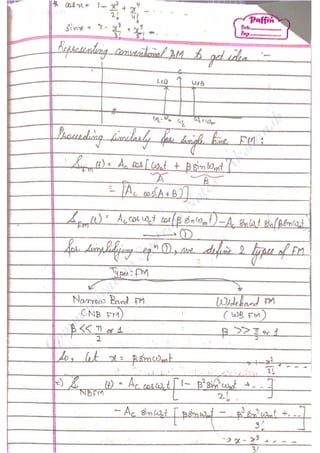 * cos x = 1 - x²/2! + x⁴/4! ...
Puffin
Date
Page
sin x = x - x³/3! + x⁵/5! ...
Representing conventional AM to get idea :-
LSB
USB
0
ωc-ωm ωc ωc+ωm
Proceeding similarly for single tone FM:
S_FM(t) = Ac cos[ωct + β sin ωmt]
A B
= Ac cos(A+B)
S_FM(t) = Ac cos ωct cos(β sin ωmt) - Ac sin ωct sin(β sin ωmt)
→ ①
for simplifying eqⁿ ①, we define 2 types of FM
Types: FM
Narrow Band FM Wideband FM
(NB FM) (WB FM)
β << π/2 or 1 β >> π/2 or 1
So, let x = β sin ωmt
1 - x²/2! + ...
S_NBFM(t) = Ac cos ωct [1 - β² sin² ωmt/2! + ...]
- Ac sin ωct [β sin ωmt - β³ sin³ ωmt/3! + ...]
→ x - x³/3! = ...